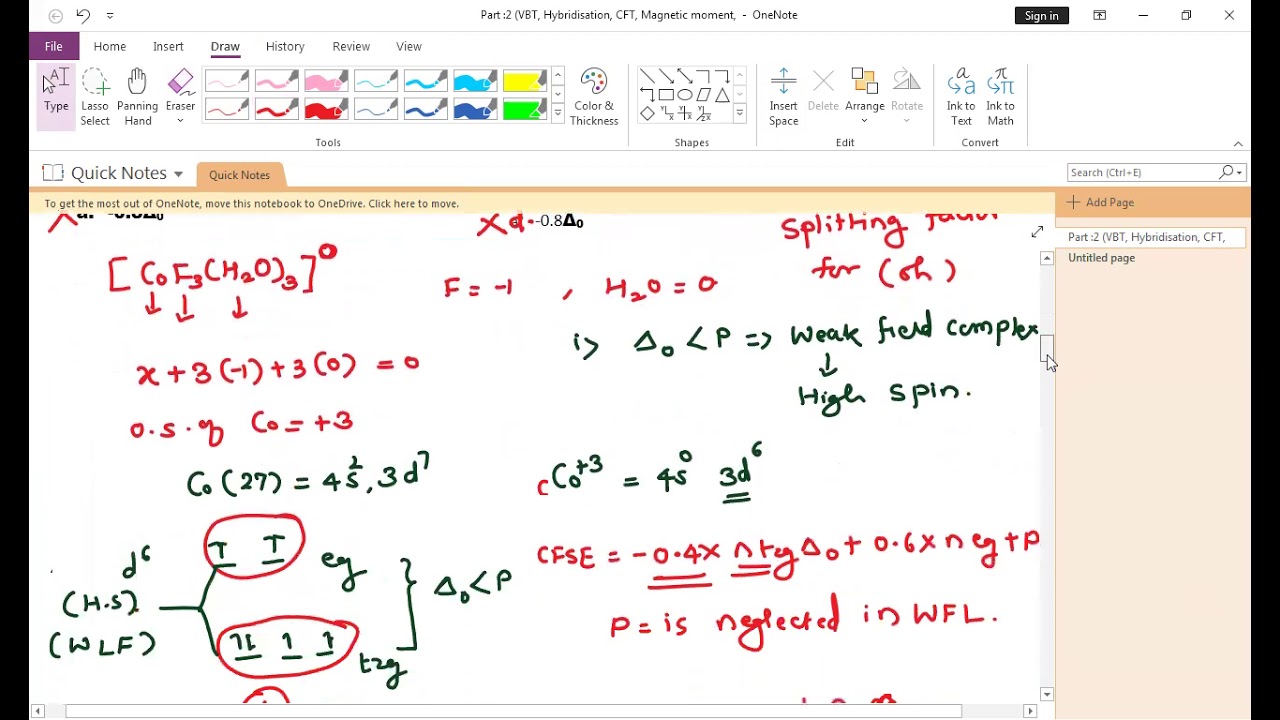 Part :2 (VBT, Hybridisation, CFT, Magnetic moment, - OneNote
Sign in
File Home Insert Draw History Review View
Type
Lasso Select
Panning Hand
Eraser
Color & Thickness
Insert Space
Delete
Arrange
Rotate
Ink to Text
Ink to Math
Tools Shapes Edit Convert
Quick Notes
Quick Notes
Search (Ctrl+E)
To get the most out of OneNote, move this notebook to OneDrive. Click here to move.
Add Page
Part :2 (VBT, Hybridisation, CFT,
Untitled page
X d. -0.8Δ₀
Splitting factor
for (oh)
[CoF₃(H₂O)₃]⁰
F = -1 , H₂O = 0
i> Δ₀ < P => Weak field complex
↓
High spin.
x + 3(-1) + 3(0) = 0
O.S. of Co = +3
Co(27) = 4s², 3d⁷
Co⁺³ = 4s⁰ 3d⁶
CFSE = -0.4 x nt₂g Δ₀ + 0.6 x neg + P
P = is neglected in WFL.
d⁶
(H.S)
(WLF)
eg
Δ₀ < P
t₂g